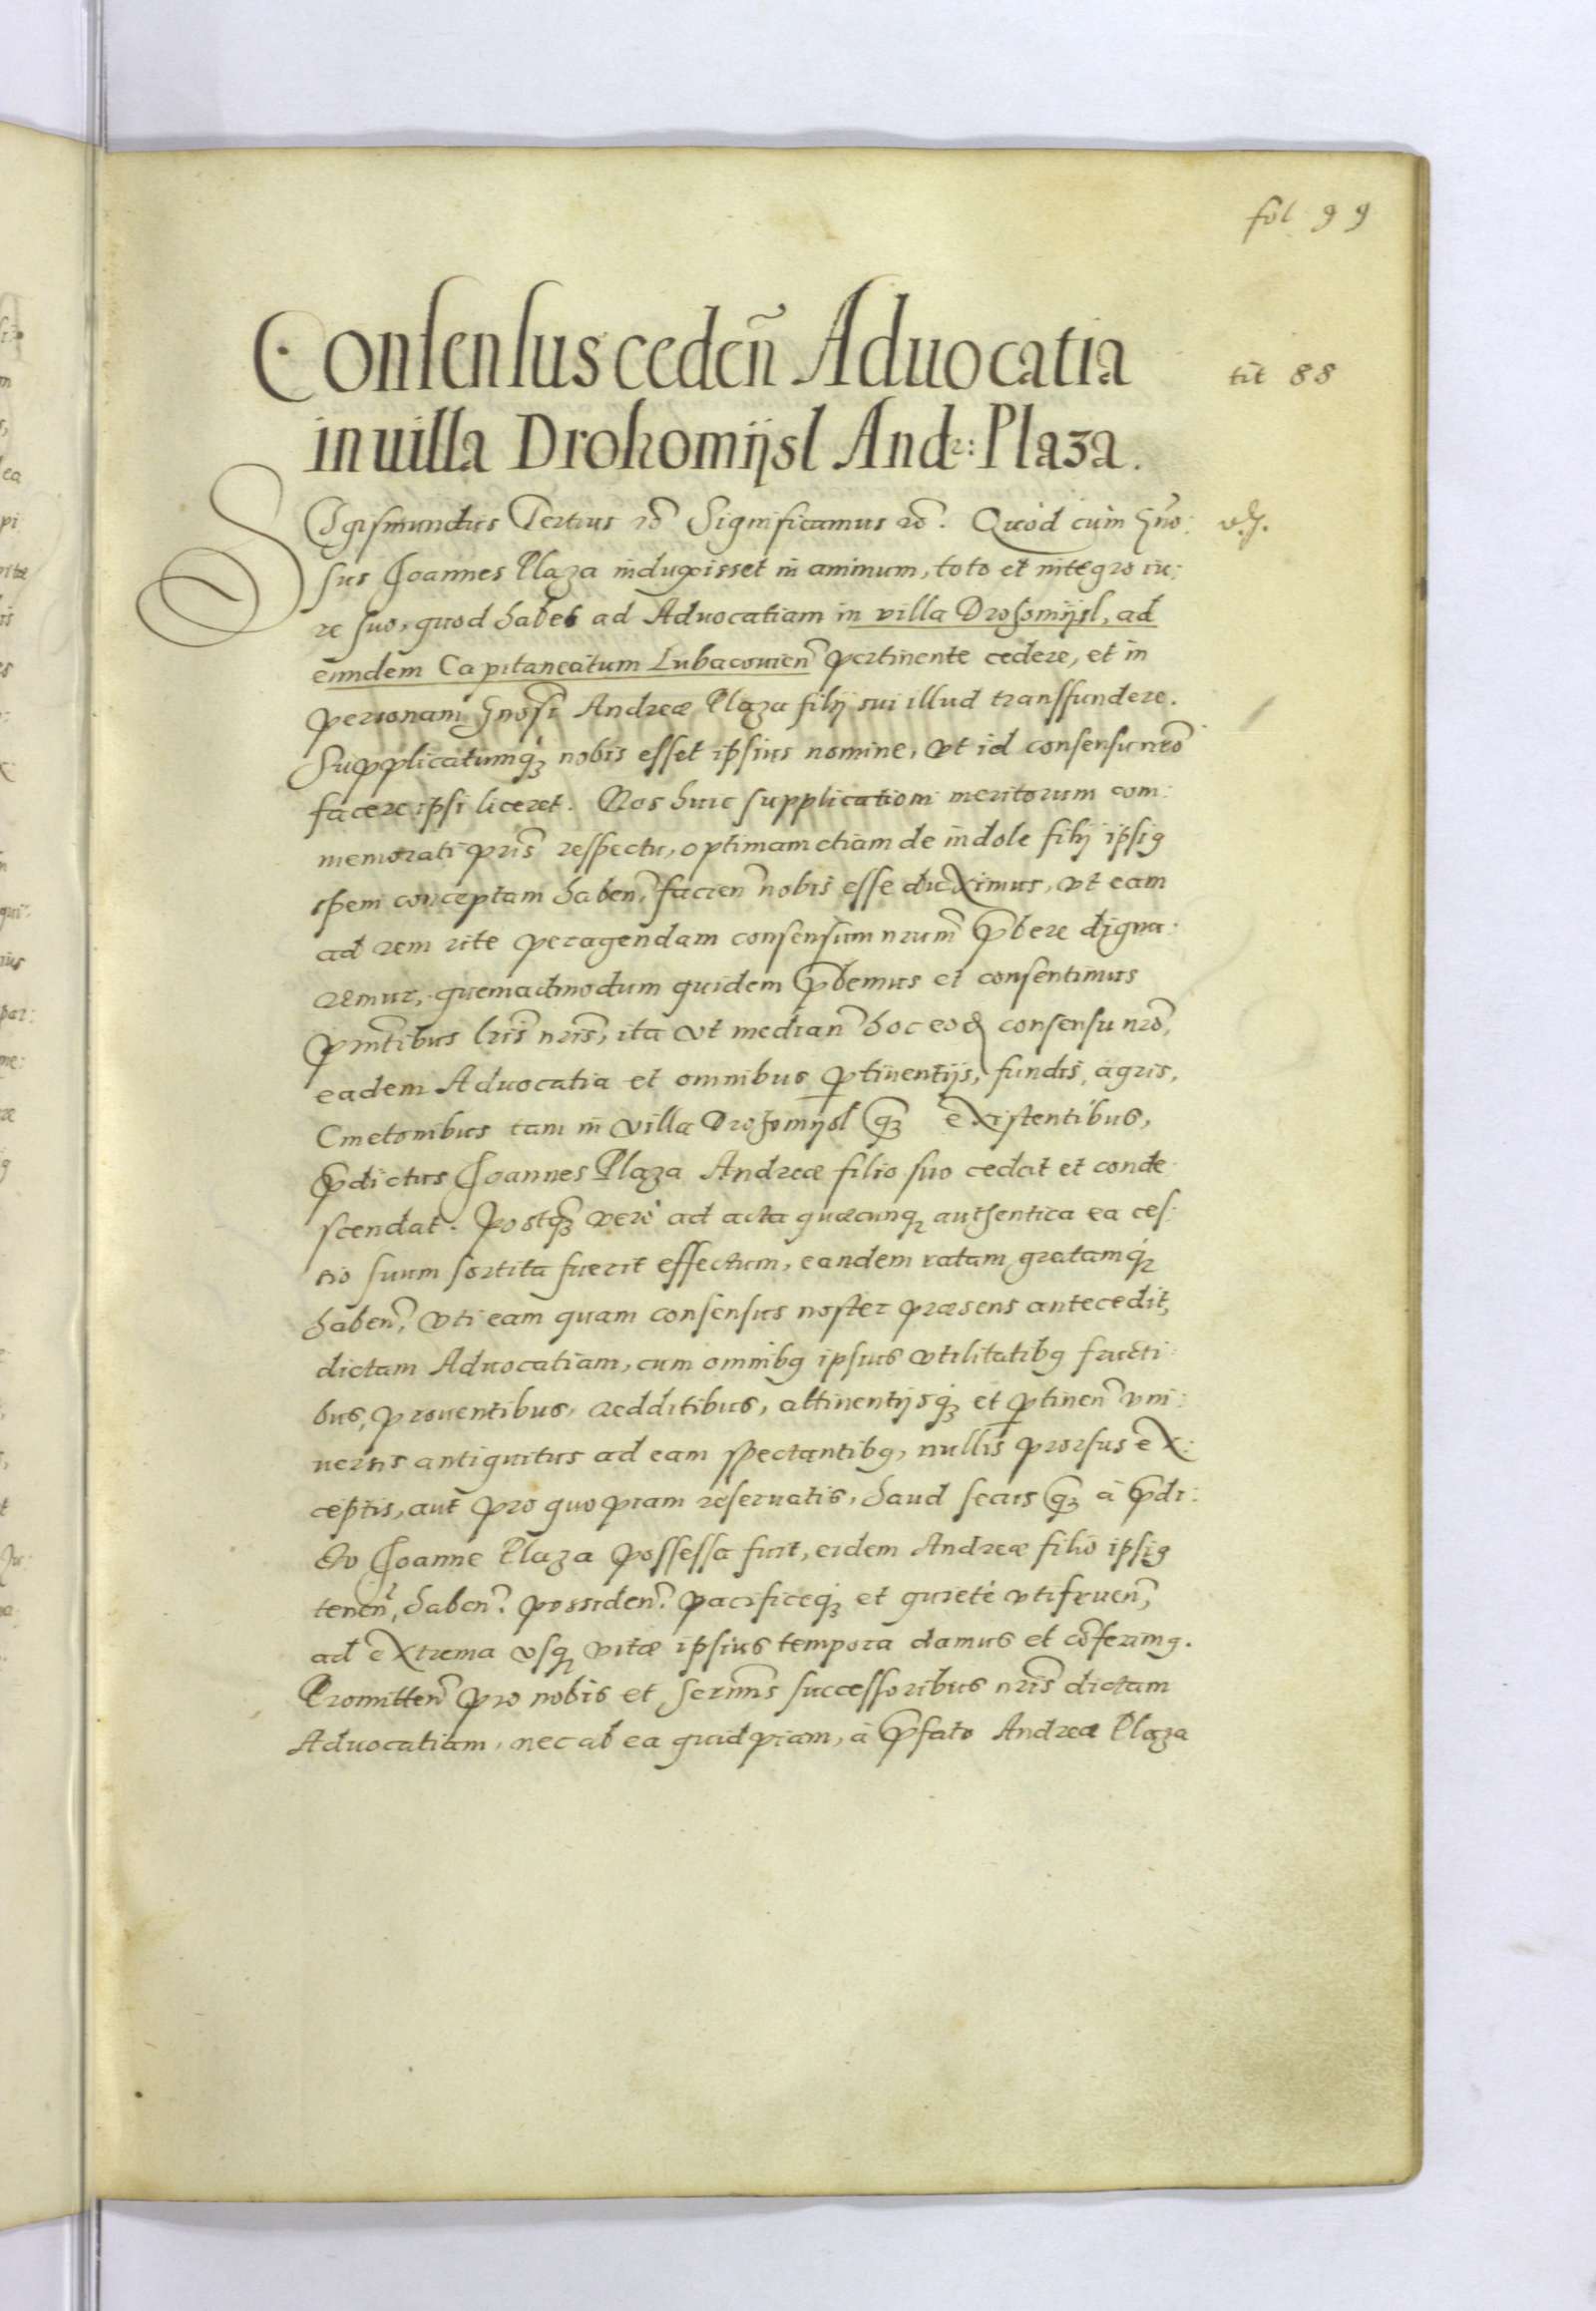 fol 99
Consensus cedeñ Aduocatia
tit 88
in uilla Drohomijsl Andr: Plaza.
Sigismundus Tertius rõ Significamus rõ. Quòd cùm Gño:
sus Joannes Plaza induxisset in animum, toto et integro iu:
re suo, quod habet ad Aduocatiam in villa Drohomijsl, ad
eundem Capitaneatum Lubacouieñ pertinente cedere, et in
personam Gnosi Andreæ Plaza filij sui illud transfundere.
Supplicatumq; nobis esset ipsius nomine, vt id consensu nrõ
facere ipsi liceret. Nos huic supplicationi meritorum com:
memorati pris̃ respectu, optimam etiam de indole filij ipsiꝰ
spem conceptam habeñ, facieñ nobis esse duximus, vt eam
ad rem rite peragendam consensum nrum̃ p̃bere digna:
remur, quemadmodum quidem p̃bemus et consentimus
pñtibus lris̃ nris̃, ita vt mediañ hoc eod consensu nrõ,
eadem Aduocatia et omnibus ꝑtinentijs, fundis, agris,
Cmetonibus tam in villa Drohomijsl q̃ existentibus,
p̃dictus Joannes Plaza Andreæ filio suo cedat et conde
scendat. Postq̃ verò ad acta quæcunq; authentica ea ces:
sio suum sortita fuerit effectum, eandem ratam gratamq;
habeñ, vti eam quam consensus noster præsens antecedit,
dictam Aduocatiam, cum omnibꝰ ipsius vtilitatibꝰ fructi
bus, prouentibus, redditibus, attinentijsq; et ꝑtineñ vni:
uersis antiquitus ad eam spectantibꝰ, nullis prorsus ex:
ceptis, aut pro quopiam reseruatis, haud secus q̃ à p̃di:
cto Joanne Plaza possessa fuit, eidem Andreæ filio ipsiꝰ
teneñ, habeñ. possideñ. pacificeq; et quietè vtifrueñ,
ad extrema vsq; vitæ ipsius tempora damus et cõferimꝰ.
Promitteñ pro nobis et Sermis̃ successoribus nris̃ dictam
Aduocatiam, nec ab ea quidpiam, à p̃fato Andrea Plaza